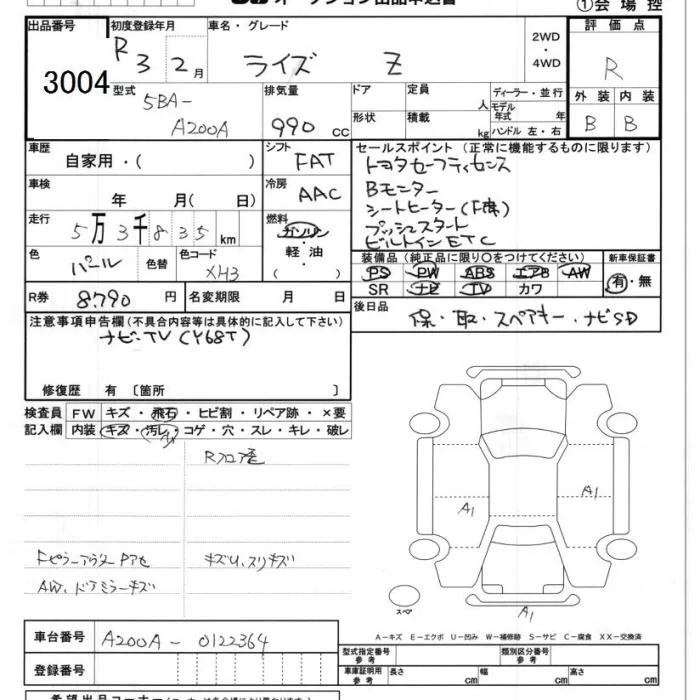 オークション出品申込書
①会場控
出品番号
3004
初度登録年月
R 3 2月
車名・グレード
ライズ Z
2WD・4WD
評価点
R
型式
5BA-
A200A
排気量
990 cc
ドア
形状
定員
人
積載量
kg
ディーラー・並行
モデル年式 年
ハンドル 左・右
外装 内装
B B
車歴
自家用・( )
シフト
FAT
セールスポイント (正常に機能するものに限ります)
トヨタセーフティセンス
Bモニター
シートヒーター(F席)
プッシュスタート
ビルトインETC
車検
年 月( 日)
冷房
AAC
走行
5万3千835km
燃料
ガソリン・軽油
( )
色
パール
色替
色コード
XH3
装備品 (純正品に限り○をつけてください)
PS PW ABS エアB AW
SR ナビ TV カワ
新車保証書
有・無
R券
8790円
名変期限 月 日
後日品
保・取・スペアキー・ナビSD
注意事項申告欄(不具合内容等は具体的に記入して下さい)
ナビ-TV(Y68T)
修復歴 有 〔箇所 〕
検査員記入欄
FW キズ・飛石・ヒビ割・リペア跡・×要
内装 キズ・汚レ・コゲ・穴・スレ・キレ・破レ
Rフロア歪
Fピラーアウターアセ
キズU、スリキズ
AW、ドアミラーキズ
A1
A1
A1
スペア
A－キズ E－エクボ U－凹み W－補修跡 S－サビ C－腐食 XX－交換済
車台番号
A200A-0122364
登録番号
型式指定番号 参考
類別区分番号 参考
車庫証明用 参考
長さ cm
幅 cm
高さ cm